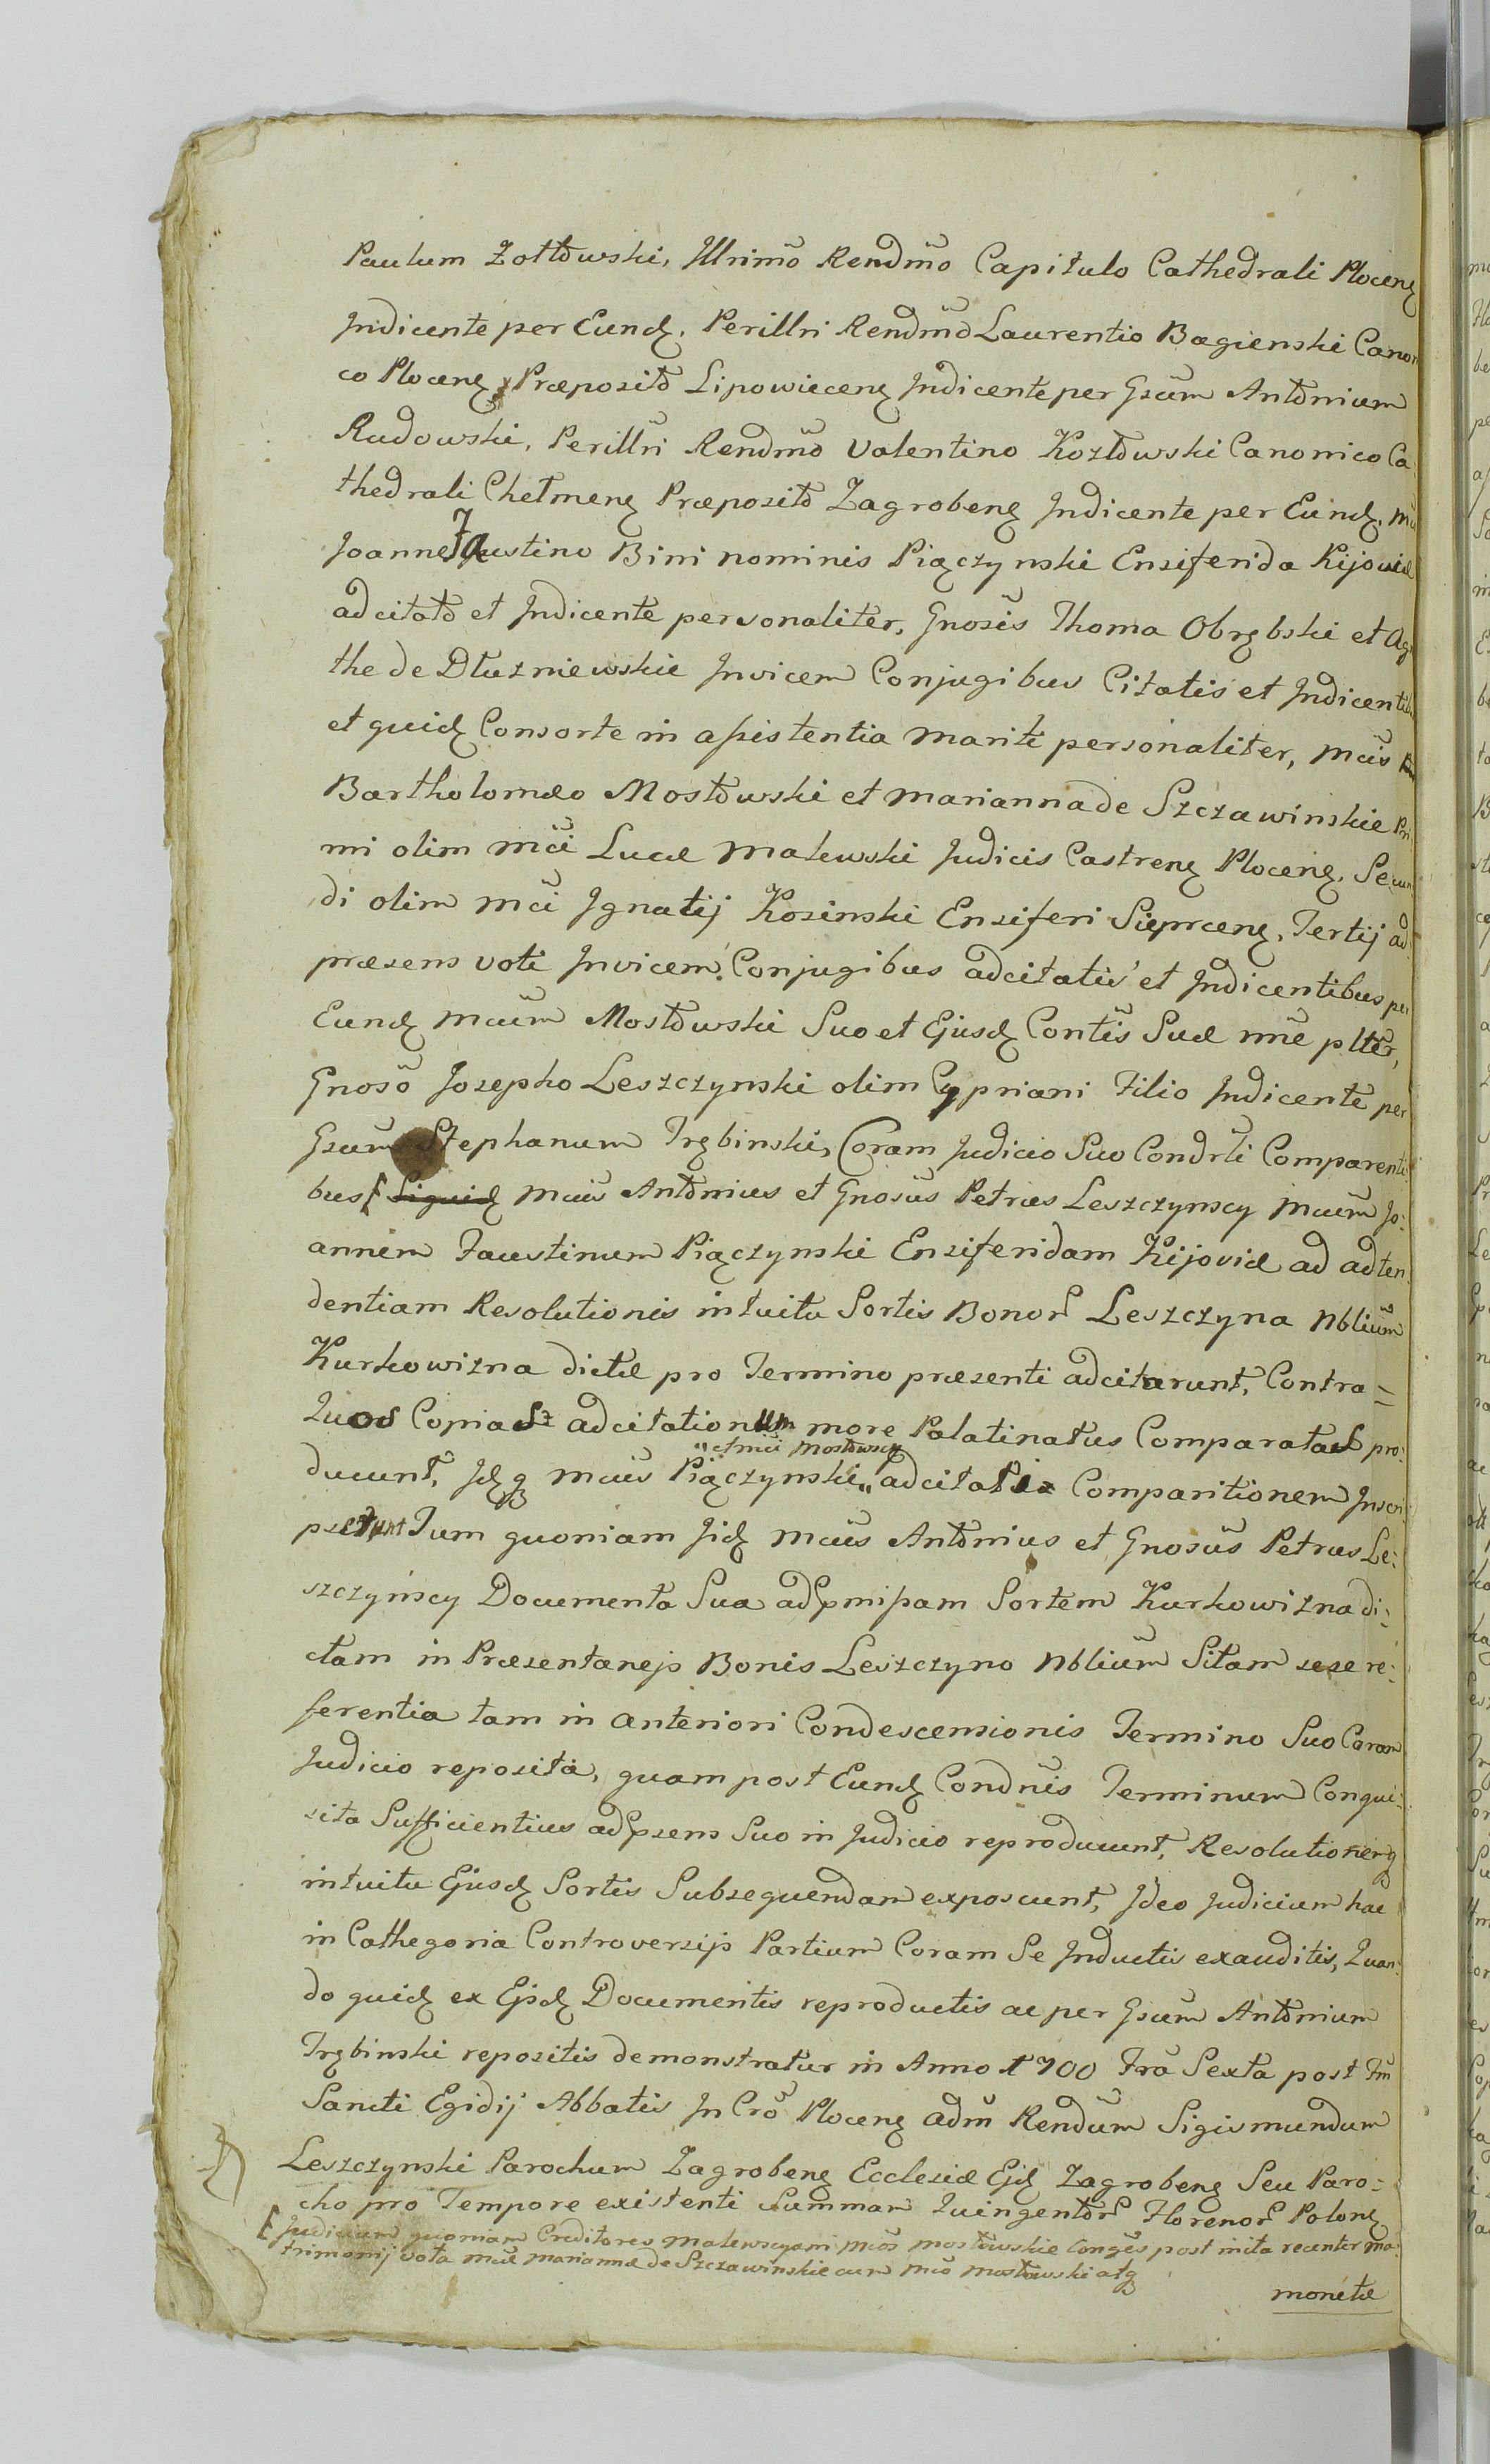 Paulum Zołtowski, Illrimo Rendmo Capitulo Cathedrali Plocenȝ
Indicente per Eundȝ. Perillri Rendmo Laurentio Bagienski Canoni
co Plocenȝ Præposito Lipowiecenȝ Indicente per Gsum Antonium
Rudowski, Perillri Rendmo Valentino Kozłowski Canonico Ca
thedrali Chełmenȝ Præposito Zagrobenȝ Indicente per Eundȝ.
Joanne Faustino Bini nominis Piączynski Ensiferida Kijoviæ
adcitato et Indicente personaliter, Gnosis Thoma Obrębski et Aga
the de Dłuzniewskie Invicem Conjugibus Citatis et Indicentibus
et quidȝ Consorte in assistentia Mariti personaliter, Mcis
Bartholomæo Mostowski et Marianna de Szczawinskie Pri
mi olim Mci Lucæ Malewski Judicis Castrenȝ Plocenȝ. Secun
di olim Mci Ignatij Kosinski Ensiferi Sieprcenȝ, Tertij ad
præsens voti Invicem Conjugibus adcitatis et Indicentibus per
Eundȝ Mcum Mostowski Suo et Ejusdȝ Contis Suæ nne plter,
Gnoso Josepho Leszczynski olim Cypriani Filio Indicente per
Gsum Stephanum Trębinski, Coram Judicio Suo Condrli Comparenti
bus [ Siquidȝ Mcus Antonius et Gnosus Petrus Leszczynscy Mcum Jo:
annem Faustinum Piączynski Ensiferidam Kijoviæ ad adten
dentiam Resolutionis intuitu Sortis Bonor Leszczyna Nblium
Kurkowizna dictæ pro Termino præsenti adcitarunt, Contra=
Quos Copias adcitationum more Palatinatus Comparatas pro:
" et Mci Mostowscy
ducunt, Idȝ q Mcus Piączynski " adcitati Comparitionem Inscri
pserunt Tum quoniam Iidȝ Mcus Antonius et Gnosus Petrus Le:
szczyńscy Documenta Sua ad pmissam Sortem Kurkowizna di:
ctam in Præsentanejs Bonis Leszczyno Nblium Sitam sese re:
ferentia tam in anteriori Condescensionis Termino Suo Coram
Judicio reposita, quam post Eundȝ Condnis Terminum Conqui:
sita Sufficientius ad psens Suo in Judicio reproducunt, Resolutionemq
intuitu Ejusdȝ Sortis Subsequendam exposcunt, Ideo Judicium hac
in Cathegoria Controversijs Partium Coram Se Inductis exauditis, Quan:
do quidȝ ex Ejsdȝ Documentis reproductis ac per Gsum Antonium
Trębinski repositis demonstratur in Anno 1700 Fra Sexta post Fm
Sancti Egidij Abbatis In Cro Plocenȝ Adm Rendum Sigismundum
Leszczynski Parochum Zagrobenȝ Ecclesiæ Ejdȝ Zagrobenȝ Seu Paro:
cho pro Tempore existenti Summam Quingentor Florenor Polonȝ
[ Judicium quoniam Creditores Malewscyani Mcos Mostowskie Conges post inita recenter Ma:
trimonij vota Mcæ Mariannæ de Szczawinskie cum Mco Mostowski atq
monetæ